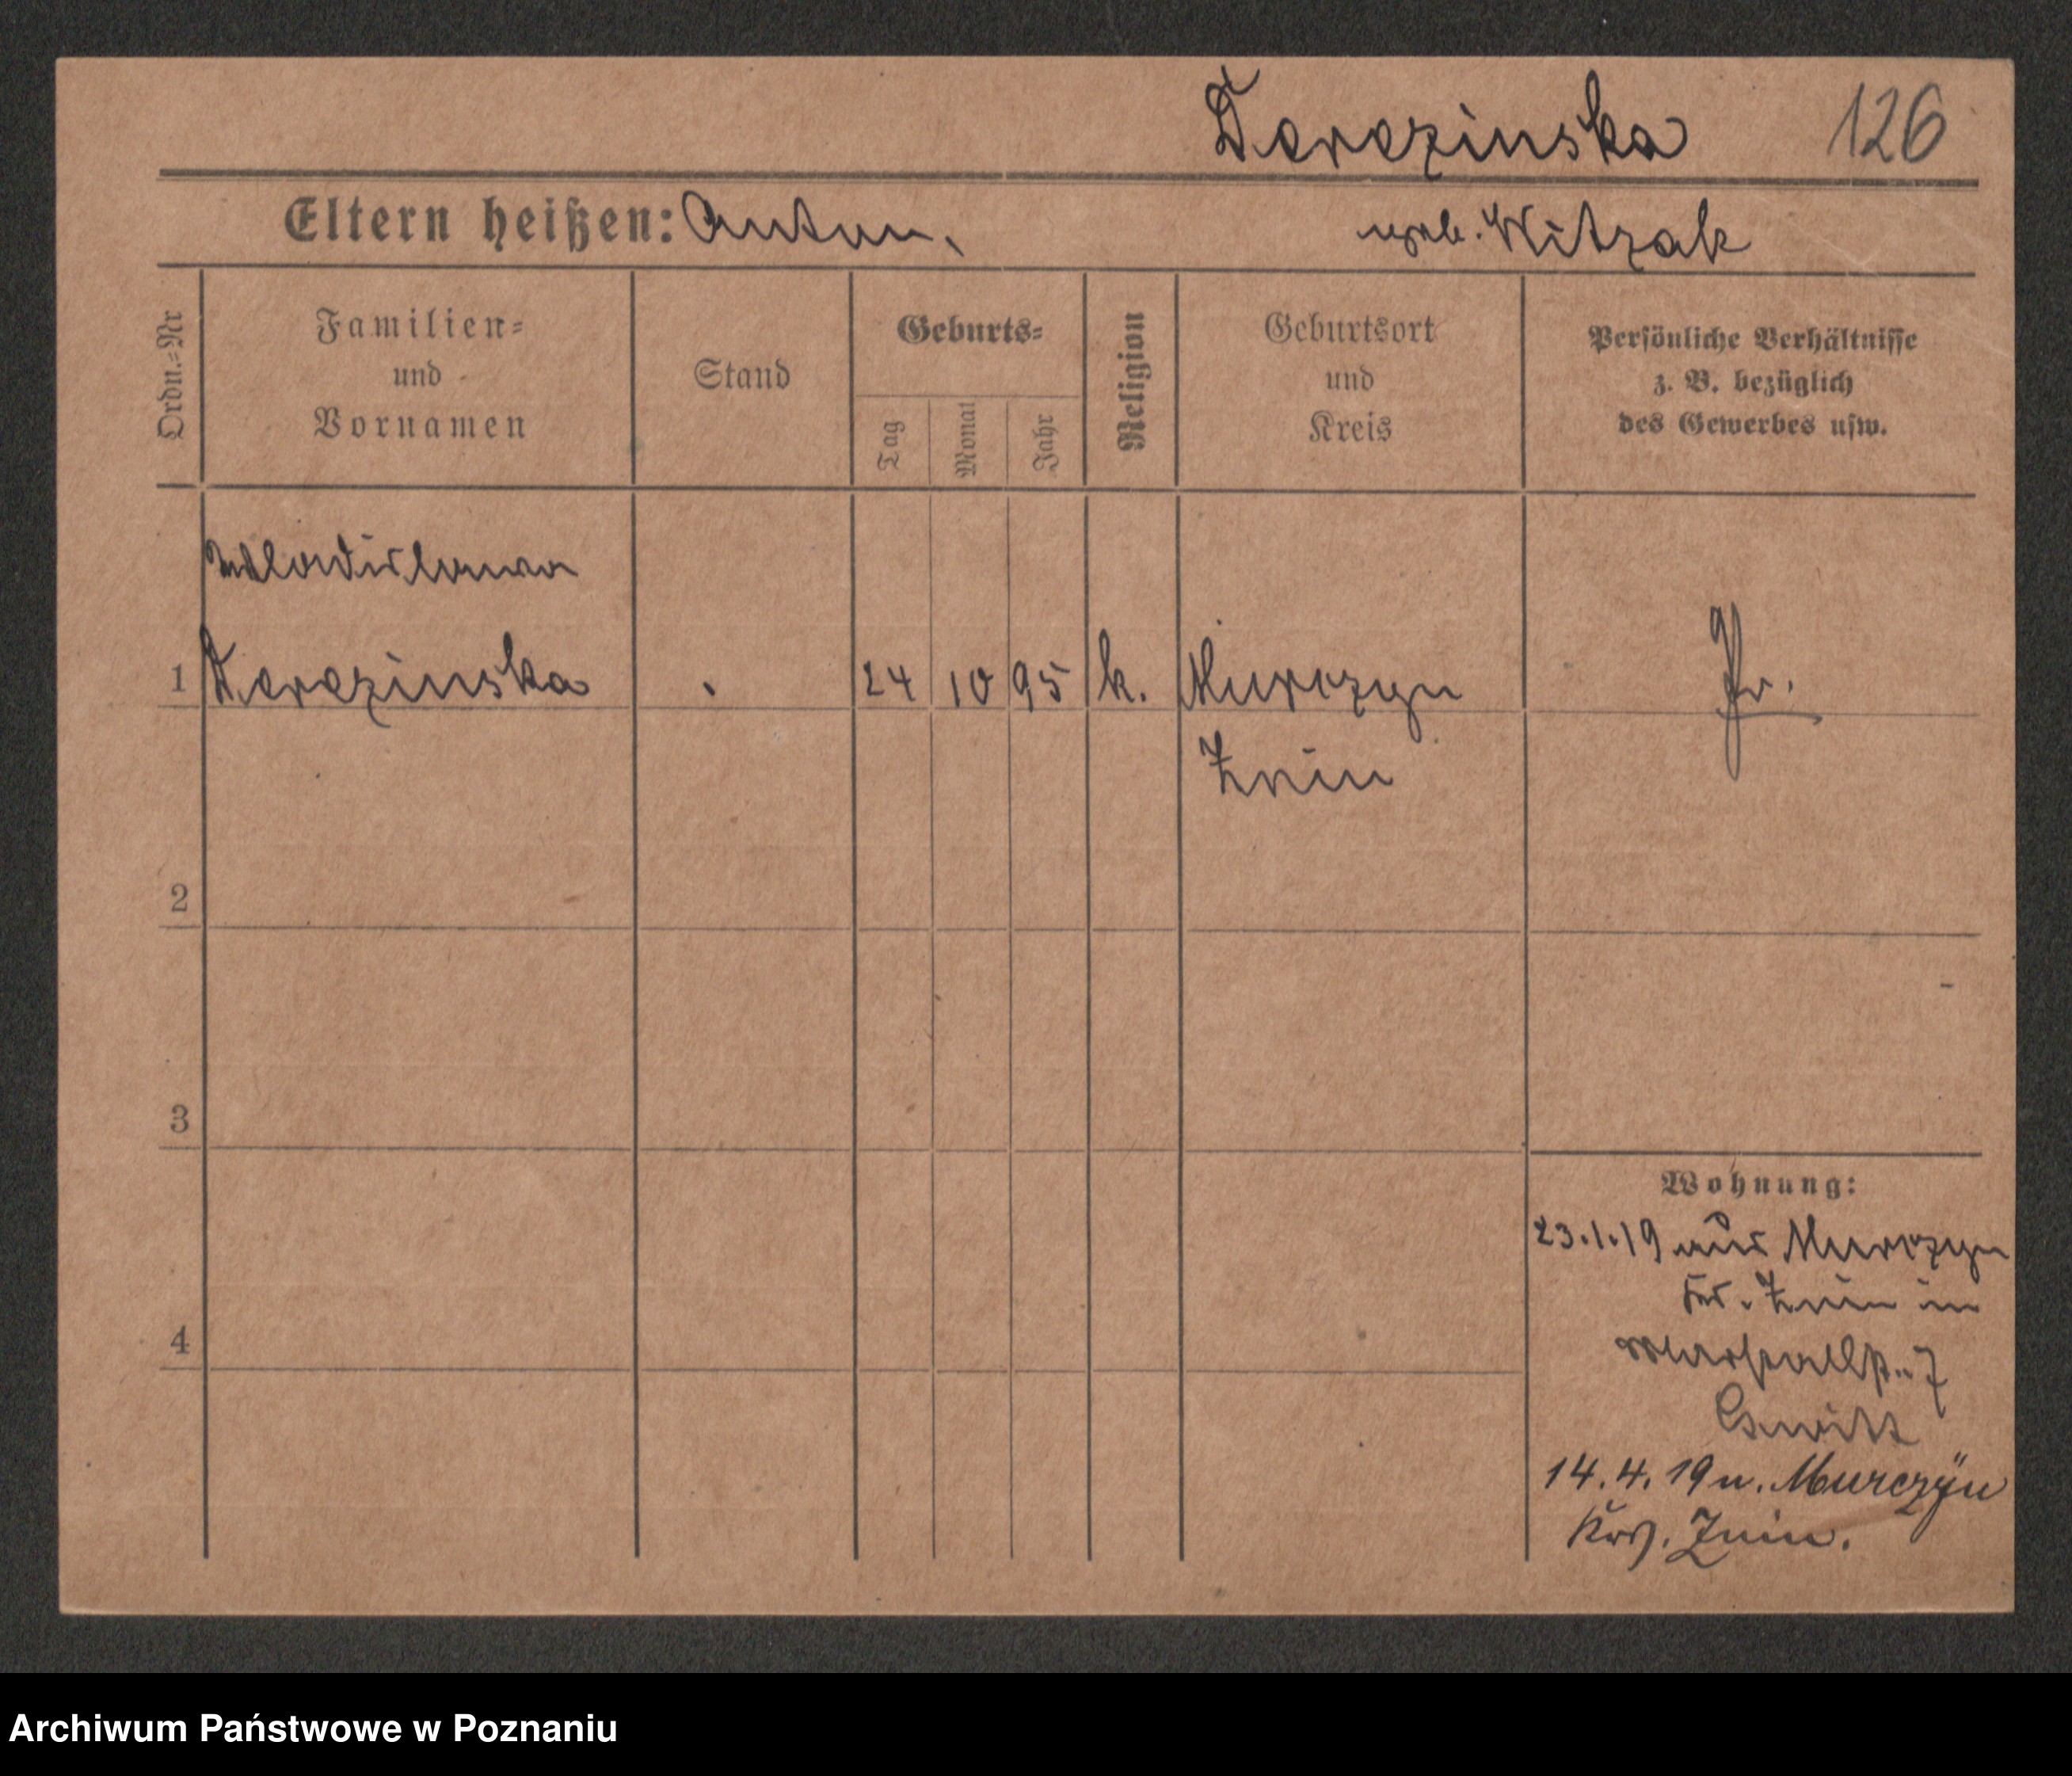 Derezinska 126
Eltern heißen: Anton, geb. Witzak
Ordn.=Nr
Familien=
und
Vornamen
Stand
Geburts=
Tag
Monat
Jahr
Religion
Geburtsort
und
Kreis
Persönliche Verhältnisse
z. B. bezüglich
des Gewerbes usw.
Wladislawa
1 Derezinska 24 10 95 k. Murczyn Pr.
Znin
2
3
4
Wohnung:
23.1.19 aus Murczyn
Znin in
14.4.19 n. Murczÿn
Krs. Znin.
Archiwum Państwowe w Poznaniu